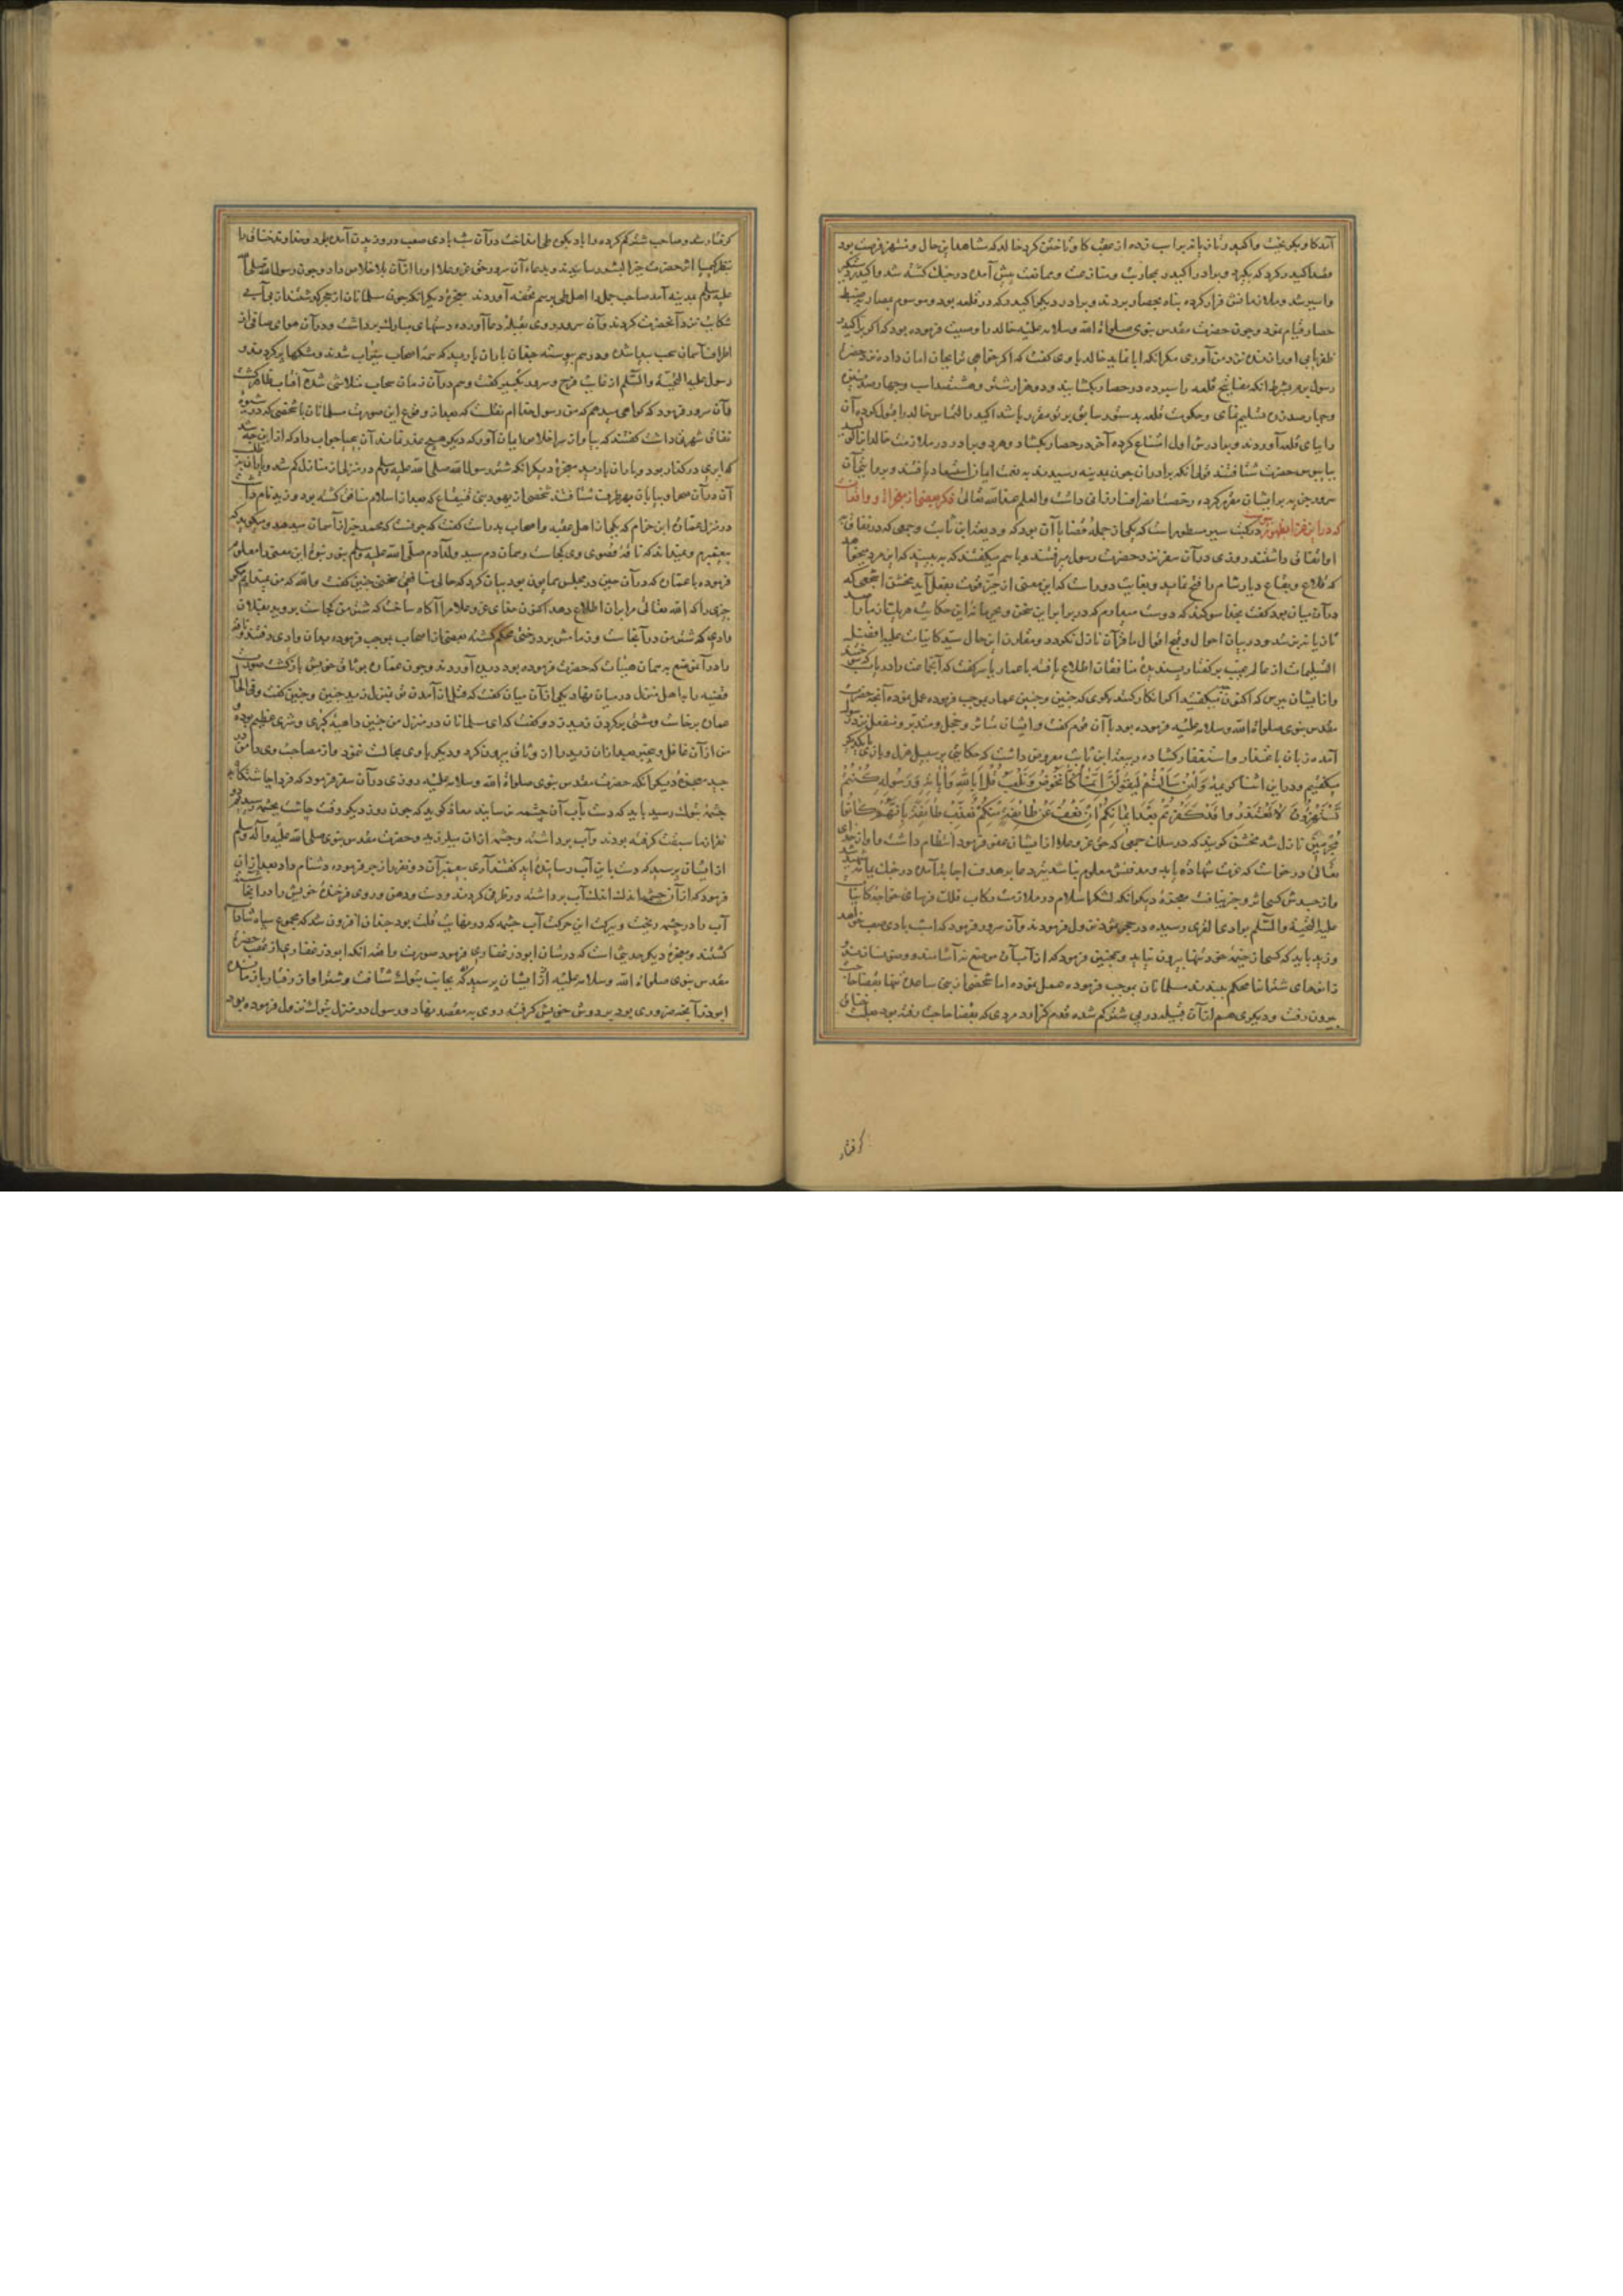 آمد کاو بکریخت و اکیدر زنان را بر اسب زده از عقب کاو تاختن کرد خالد که شاهد این حال و منتهز فرصت بود
قصد اکیدر کرد که بگیرد و برادر اکیدر بمحاربت و منازعت و ممانعت پیش آمده در جنک کشته شد و اکیدر دستکیر
و اسیر شد و ملازمانش فرار کرده پناه بحصار بردند و برادر دیکر اکیدر که در قلعه بود و موسوم بمصاد بضبط
حصار قیام نمود و چون حضرت مقدس نبوی صلوات الله و سلامه علیه خالد را وصیت فرموده بود که اگر بر اکیدر
ظفر یابی او را زنده نزد من آوری مکر انکه ابا نماید خالد با وی کفت که اکر خواهی ترا بجان امان داده نزد حضرت
رسول برم بشرط انکه مفاتیح قلعه را سپرده در حصار بکشایند و دو هزار شتر و هشتصد اسب و چهارصد
و چهارصد زره تسلیم نمای و حکومت قلعه بدستور سابق بر تو مقرر باشد اکیدر التماس خالد را قبول کرده آن
را بپای قلعه آوردند و برادرش اول امتناع کرده آخر در حصار بکشاد و هر دو برادر در ملازمت خالد
بپابوس حضرت شتافتند قولی انکه برادران چون بمدینه رسیدند بدولت ایمان استسعاد یافتند و
سرور جزیه بر ایشان مقرر کرده رخصت انصراف ارزانی داشت و العلم عند الله تعالی ذکر بعضی از معجزات و واقعات
که در این غزا بظهور پیوست در کتب سیر مسطور است که یکی از جمله قضایا آن بود که ودیعة ابن ثابت و جمعی که در نفاق با
او اتفاق داشتند روزی در آن سفر نزد حضرت رسول میرفتند و با هم میکفتند که ببینید که این مرد میخواهد
که قلاع و بقاع دیار شام را فتح نماید و بغایت دور است که این معنی از حیز قوت بفعل آید مخشی اشجعی که
در آن میان بود کفت بخدا سوکند که دوست میدارم که در برابر این سخن و
تازیانه بزنند و در بیان احوال و قبح اقوال ما قرآن نازل نکردد و مقارن این حال سید کاینات علیه افضل
التسلیمات از عالم غیب بر کفتار ناپسندیده منافقان اطلاع یافته با عمار یاسر کفت که آنجماعت را دریاب که سوختند
و از ایشان بپرس که اکنون چه میکفتید اکر انکار کنند بکوی که چنین و چنین عمار بموجب فرموده عمل نموده آنچه حضرت
مقدس نبوی صلوات الله و سلامه علیه فرموده بود با آن قوم کفت و ایشان متاثر و خجل و متحیر و منفعل نزد رسول
آمده زبان باعتذار و استغفار کشاده ودیعة ابن ثابت معروض داشت که حکایتی بر سبیل هزل و بازی با یکدیکر
میکفتیم و در این اثنا کریمه وَلَئِنْ سَأَلْتَهُمْ لَيَقُولُنَّ اِنَّمَا كُنَّا نَخُوضُ وَنَلْعَبُ قُلْ أَبِاللَّهِ وَآيَاتِهِ وَرَسُولِهِ كُنْتُمْ
تَسْتَهْزِؤُنَ لَا تَعْتَذِرُوا قَدْ كَفَرْتُمْ بَعْدَ اِيمَانِكُمْ اِنْ نَعْفُ عَنْ طَائِفَةٍ مِنْكُمْ نُعَذِّبْ طَائِفَةً بِاَنَّهُمْ كَانُوا
مُجْرِمِينَ نازل شد مخشی کویند که در سلک جمعی که حق عز و علا از ایشان عفو فرمود انتظام داشت و او از خدای
تعالی درخواست که بعزت شهادت یابد و مدفنش معلوم نباشد تیر دعا بر هدف اجابت آمده در جنک یمامه شهید شد
و از جسدش کسی اثر و خبر نیافت معجزه دیکر انکه لشکر اسلام در ملازمت رکاب فلک فرسای خواجه کاینات
علیه التحیة و السلم بوادی القری رسیده در حجر ثمود نزول فرمودند و آن سرور فرمود که امشب بادی صعب خواهد
وزید باید که کسی از خیمه خود تنها بیرون نیاید و همچنین فرمود که از آب آن موضع نیاشامند و وضو نسازند و
زانوهای شتران را محکم ببندند مسلمانان بموجب فرموده عمل نموده اما شخصی از بنی ساعده تنها بقضاء حاجت
بیرون رفت و دیکری هم از آن قبیله در پی شتر کم شده قدم کزارد مردی که بقضا حاجت رفته بود بعلت خناق
کرفتار
کرفتار شد و صاحب شتر کم کرده را باد بکوه طی انداخت در آن شب بادی صعب در وزیدن آمده بود و خداوند خناق را
بنظر کیمیا اثر حضرت خیر البشر رسانیدند و بدعاء آن سرور حق عز و علا او را از آن بلا خلاص داد و چون رسول الله صلی الله
علیه و سلم بمدینه آمد صاحب جمل را اهل طی برسم تحفه آوردند معجزه دیکر انکه چون مسلمانان از حجر کذشتند از بی آبی
شکایت نزد آنحضرت کردند و آن سرور روی بقبله دعا آورده دستهای مبارک برداشت و در آن هوای صافی از
اطراف آسمان سحب پیدا شده و در هم پیوسته چندان باران بارید که همه اصحاب سیراب شدند و مشکها پر کردند و
رسول علیه التحیة و السلم از غایت فرح و سرور تکبیر کفت و هم در آن زمان سحاب متلاشی شده آفتاب ظاهر کشت
و آن سرور فرمود که کواهی میدهم که من رسول خدا ام نقلست که بعد از وقوع این صورت مسلمانان با شخصی که در شیوه
نفاق شهرتی داشت کفتند که بیا و از سر اخلاص ایمان آور که دیکر هیچ عذر نماند آن بیحیا جواب داد که از این چه شد
که ابری در کذار بود و باران بارید معجزه دیکر انکه شتر رسول الله صلی الله علیه و سلم در منزلی از منازل کم شد و یاران بطلب
آن در آن صحرا و بیابان بهر طرف شتافتند شخصی از یهود بنی قینقاع که بعد از اسلام منافق کشته بود و زید نام داشت
در منزل عماره ابن حزام که یکی از اهل عقبه و اصحاب بدر است کفت که عجبست که محمد خبر از آسمان میدهد و میکوید که
پیغمبرم و نمیداند که ناقه قصوی وی کجاست و همان دم سید ولد آدم صلی الله علیه و سلم بنور نبوت این معنی را معلوم
فرموده با عماره که در آن حین در مجلس همایون بود بیان کرد که حالی منافقی سخنی چنین کفت و الله که من نمیدانم مکر
چیزی را که الله تعالی مرا بر آن اطلاع دهد اکنون خدای عز و علا مرا آکاه ساخت که شتر من کجاست بروید بفلان
وادی که شتر من در آنجاست و زمامش بر درختی محکم کشته بعضی از اصحاب بموجب فرموده بدان وادی رفتند و ناقه
را در آن موضع به همان هیئات که حضرت فرموده بود دیده آوردند و چون عماره بوثاق خویش بازکشت صورت
قضیه را با اهل منزل در میان نهاد یکی از آن میان کفت که قبل از آمدن تو بمنزل زید چنین و چنین کفت و فی الحال
عماره برخاست و مشتی بر کردن زید زد و کفت که ای مسلمانان در منزل من چنین داهیه کبری و شری عظیم بوده و
من از آن غافل و بیخبر بعد از آن زید را از وثاق بیرون کرد و دیکر با وی مجالست ننمود و از مصاحبت وی دامن در
چید معجزه دیکر آنکه حضرت مقدس نبوی صلوات الله و سلامه علیه روزی در آن سفر فرمود که فردا چاشتکاه
چشمه تبوک رسید باید که دست بآب آن چشمه نرسانید معاذ کوید که چون روز دیکر وقت چاشت بچشمه رسیدیم دو
نفر از ما سبقت کرفته بودند و آب برداشته و چشمه از آن میلرزید و حضرت مقدس نبوی صلی الله علیه و آله و سلم
از ایشان پرسید که دست باین آب رسانیده اید کفتند آری پیغمبر آن دو نفر را زجر فرموده دشنام داد بعد از آن
فرمود که از آن چشمه اندک اندک آب برداشته در ظرفی کردند و دست و دهن و روی فرخنده خویش را در آنجا شسته
آب را در چشمه ریخت و ببرکت این حرکت آب چشمه که در نهایت قلت بود چندان افزون شد که مجموع سپاه شاداب
کشتند و معجزه دیکر حدیثی است که در شان ابوذر غفاری فرمود صورت واقعه انکه ابوذر غفاری از عقب حضرت
مقدس نبوی صلوات الله و سلامه علیه بجانب تبوک شتافت و شتر او از رفتار باز مانده
ابوذر آنچه ضروری بود بر دوش خویش کرفته روی به مقصد نهاد و رسول در منزل تبوک نزول فرموده بود